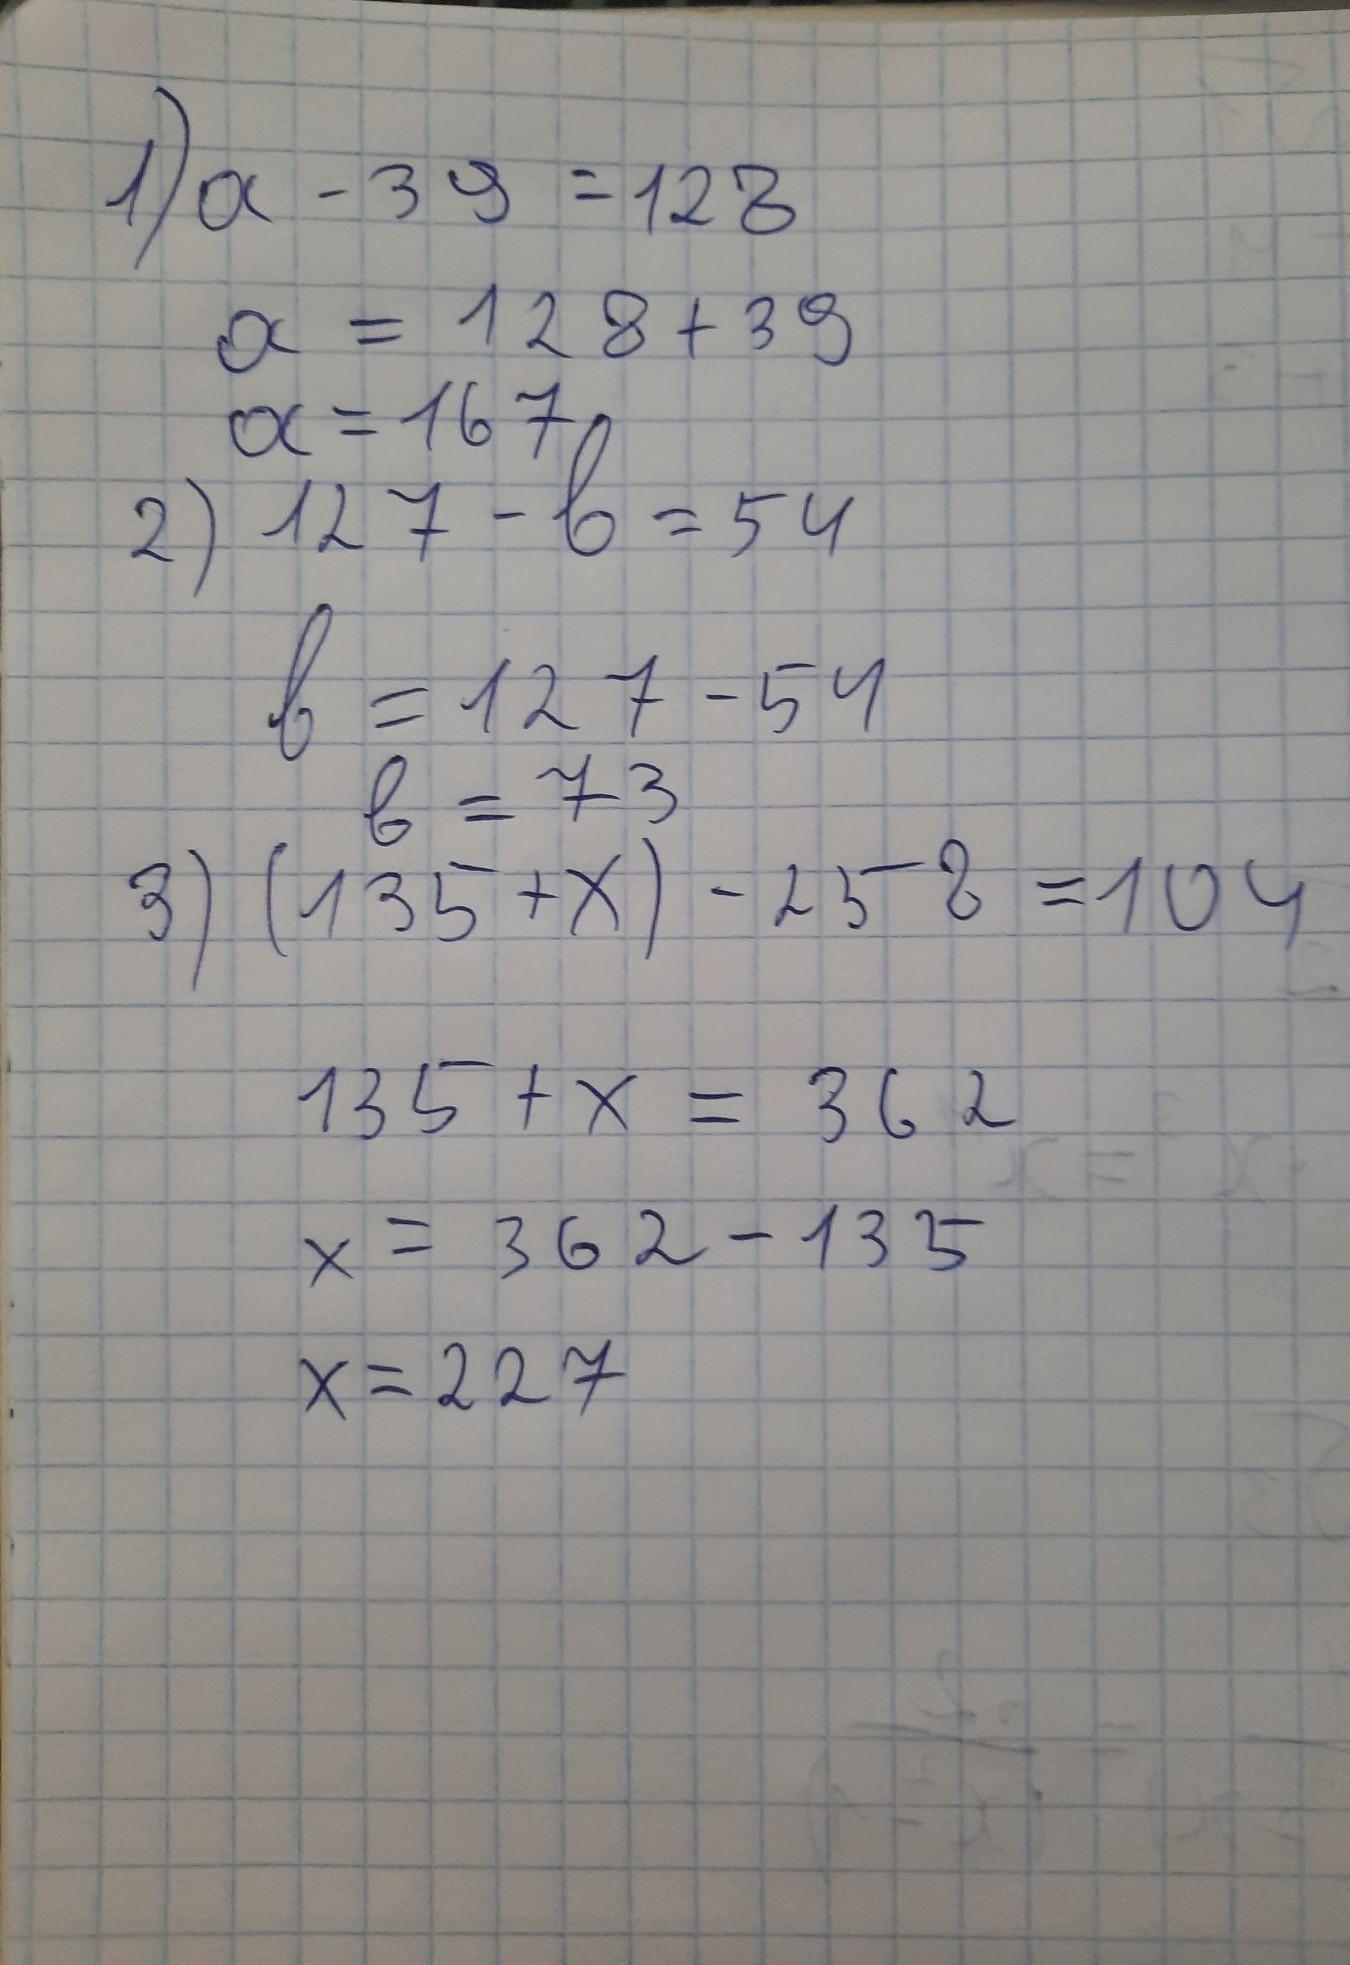 1) a - 39 = 128
a = 128 + 39
a = 167
2) 127 - b = 54
b = 127 - 54
b = 73
3) (135 + x) - 258 = 104
135 + x = 362
x = 362 - 135
x = 227